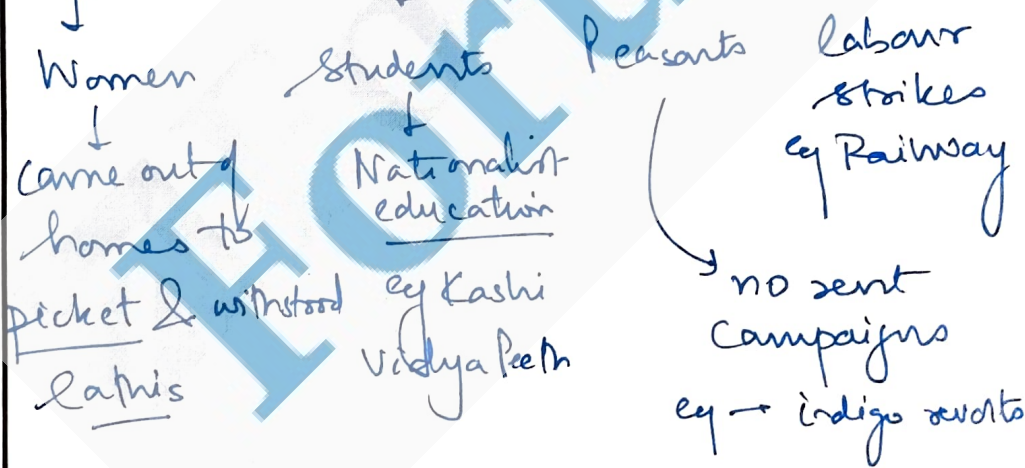 Women
↓
came out of
homes to
picket & withstood
lathis
Students
↓
Nationalist
education
eg Kashi
Vidya Peeth
Peasants
no rent
campaigns
eg → indigo revolts
labour
strikes
eg Railway
For